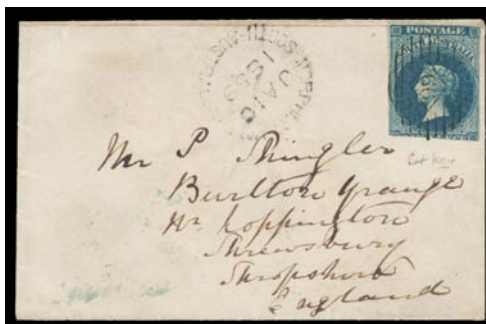 POSTAGE
SOUTH AUSTRALIA
JA 10
1859
Mr P Shingler
Burlton Grange
Nr Loppington
Shrewsbury
Shropshire
England